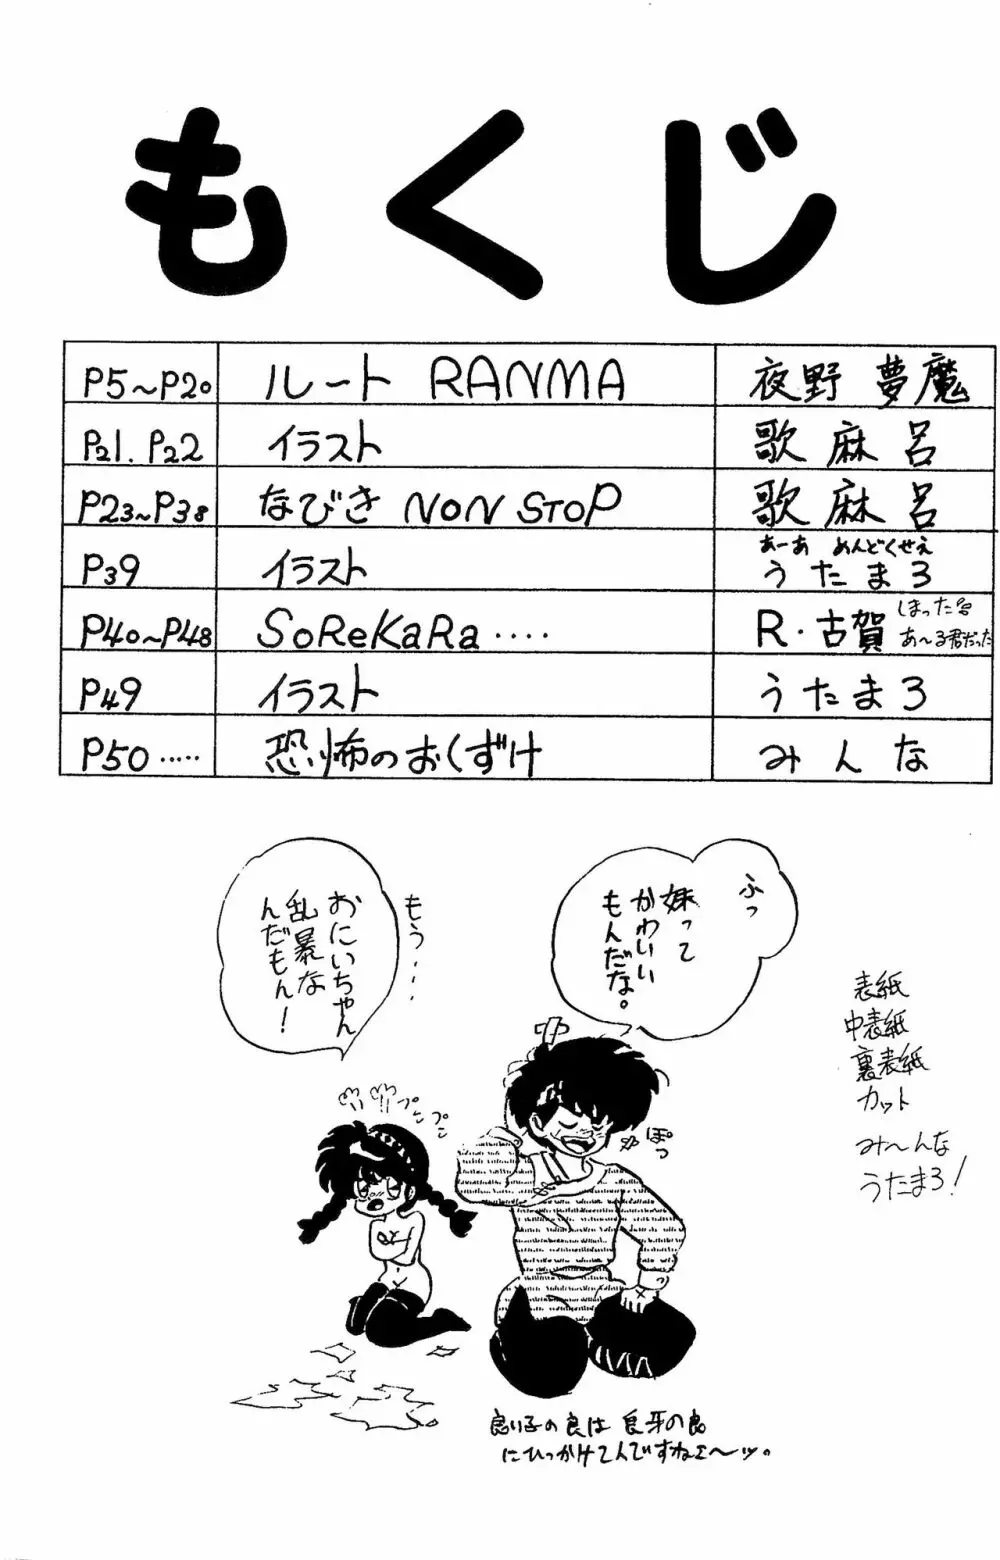 もくじ
P5〜P20 ルート RANMA 夜野 夢魔
P21. P22 イラスト 歌麻呂
P23〜P38 なびき NON STOP 歌麻呂
あーあ めんどくせえ
P39 イラスト うたまろ
P40〜P48 SoReKaRa‥‥ R・古賀
あ〜る君だった
P49 イラスト うたまろ
P50‥‥‥ 恐怖のおくずけ みんな
ふっ
妹って
かわいい
もんだな。
もう‥‥
おにいちゃん
乱暴な
んだもん!
プン
プン
ぽっ
表紙
中表紙
裏表紙
カット
み〜んな
うたまろ!
良い子の良は 良牙の良
にひっかけてんですねェ〜ッ。